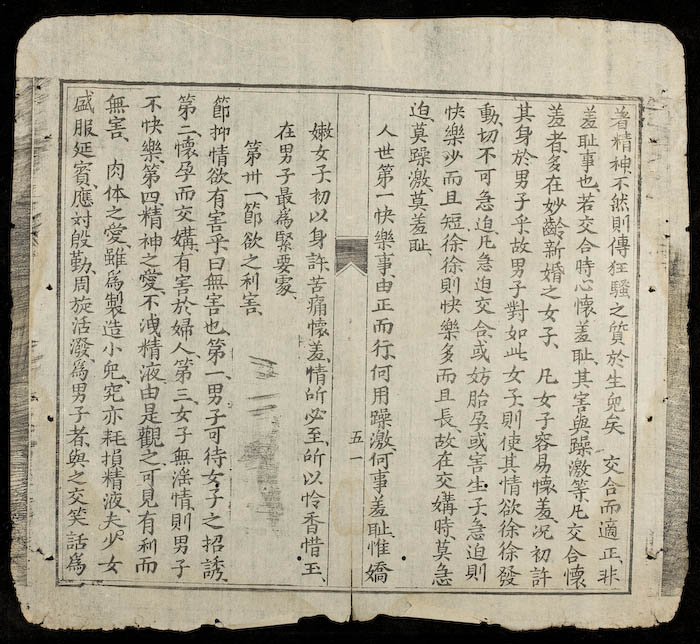 著精神、不然則傳狂騷之質於生兒矣　交合而適正、非
羞耻事也、若交合時心懷羞耻、其害與躁激等、凡交合懷
羞者、多在妙齡新婚之女子、凡女子容易懷羞、況初許
其身於男子乎、故男子對如此女子、則使其情欲徐徐發
動、切不可急迫、凡急迫交合、或妨胎孕、或害生子、急迫則
快樂少而且短、徐徐則快樂多而且長、故在交媾時、莫急
迫、莫躁激、莫羞耻、
人世第一快樂事、由正而行、何用躁激、何事羞耻、惟嬌
五一
嫩女子、初以身許、苦痛懷羞、情所必至、所以怜香惜玉、
在男子最爲緊要處、
第卅一、節欲之利害、
節抑情欲有害乎、曰無害也、第一、男子可待女子之招誘、
第二、懷孕而交媾、有害於婦人、第三、女子無淫情、則男子
不快樂、第四、精神之愛、不洩精液、由是觀之、可見有利而
無害、肉体之愛、雖爲製造小兒、究亦耗損精液、夫少女
盛服延賓、應対殷勤、周旋活潑、爲男子者、與之交笑話爲